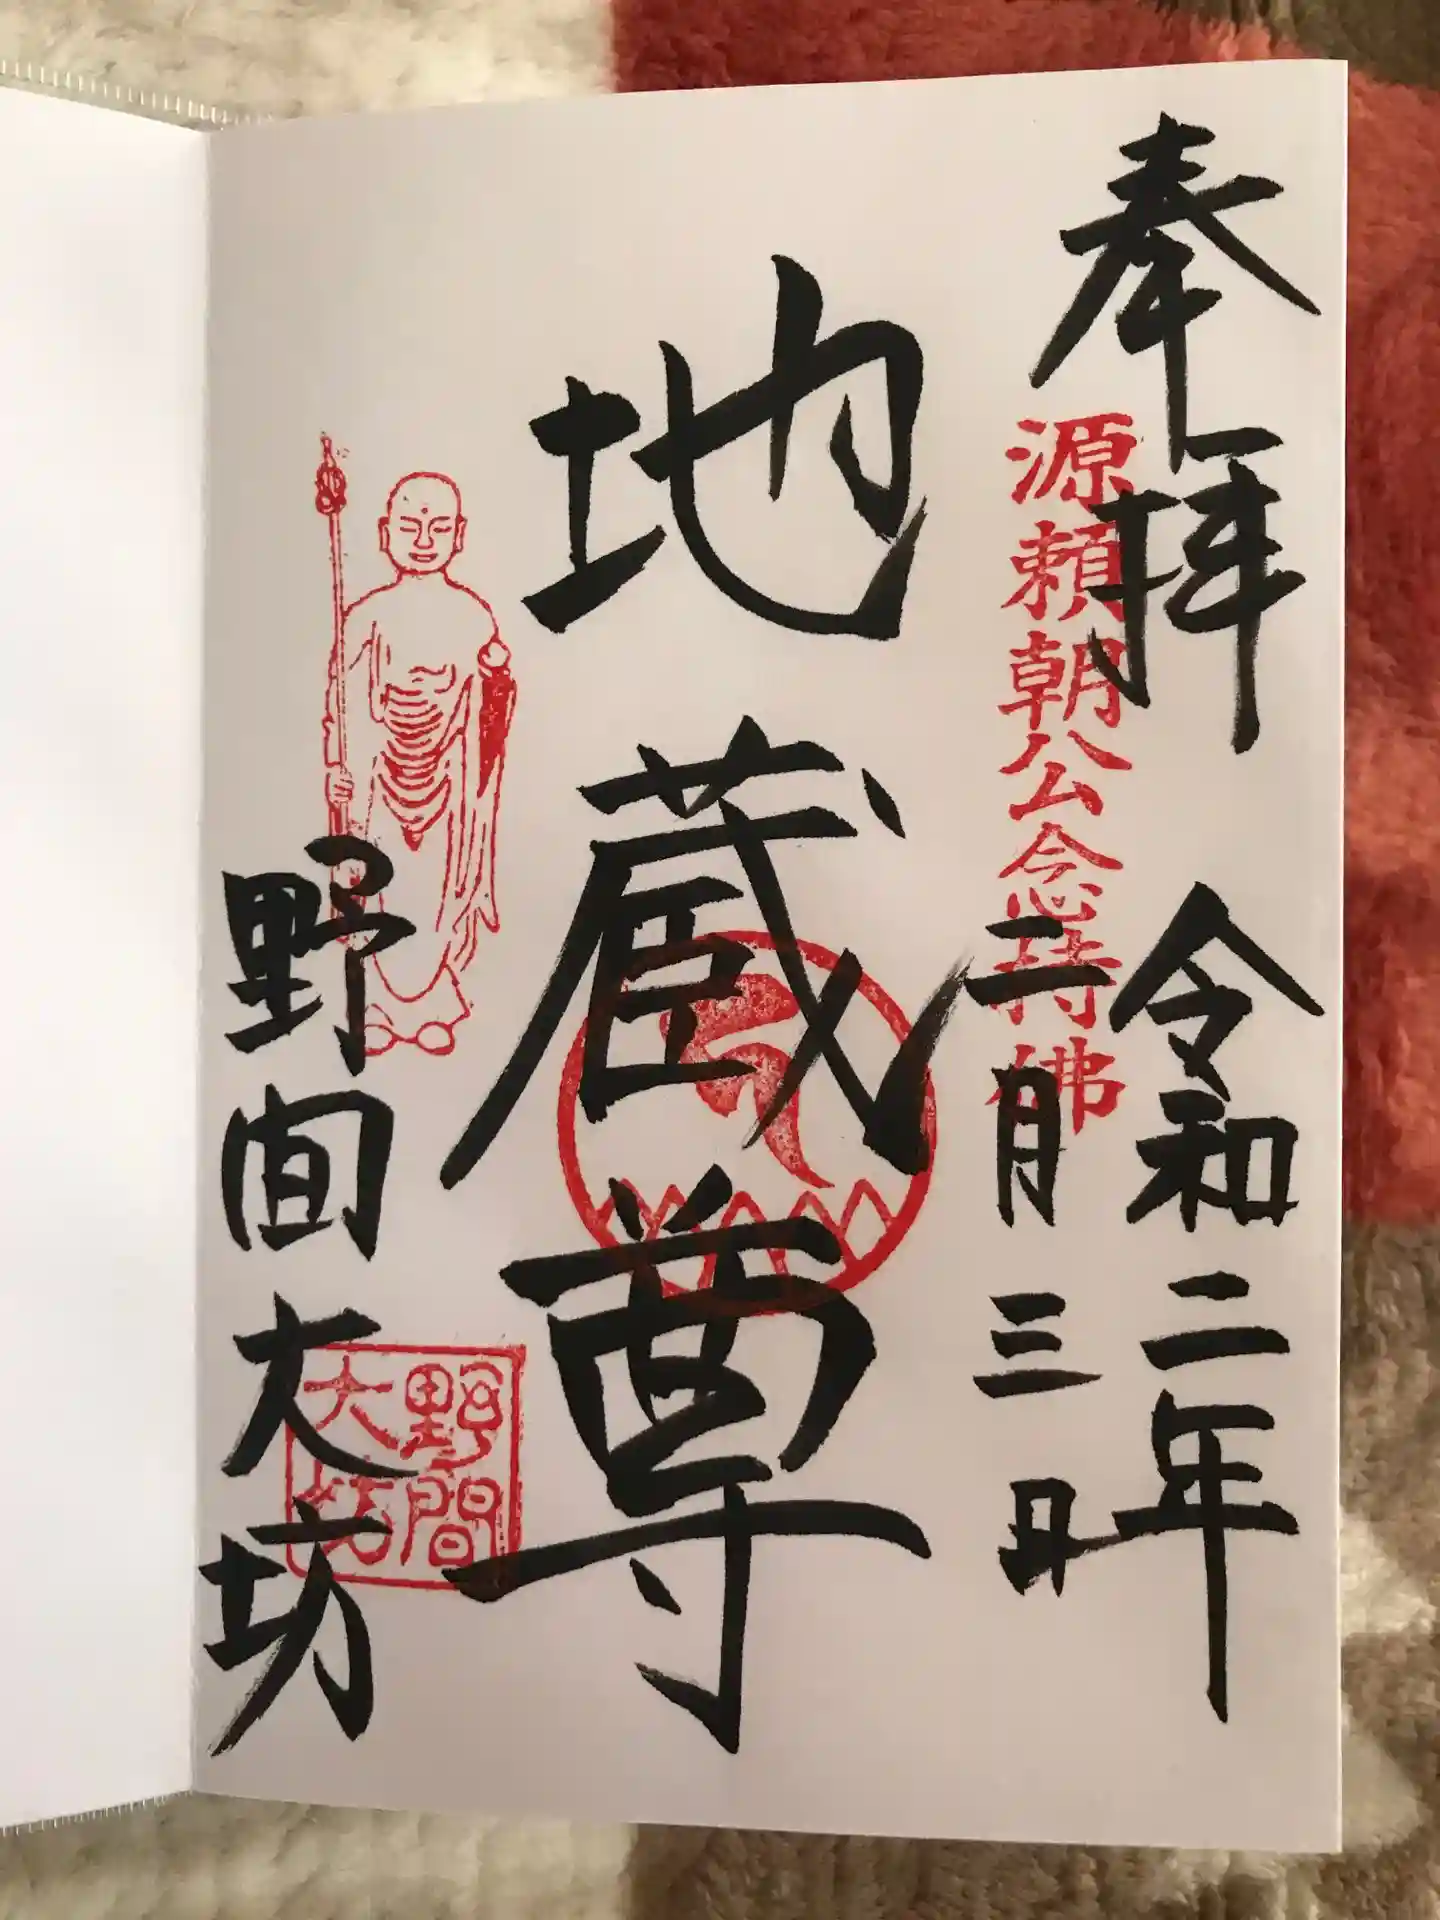 奉拝
令和二年
源頼朝公念持佛
二月三日
地蔵尊
野間大坊
野間
大坊